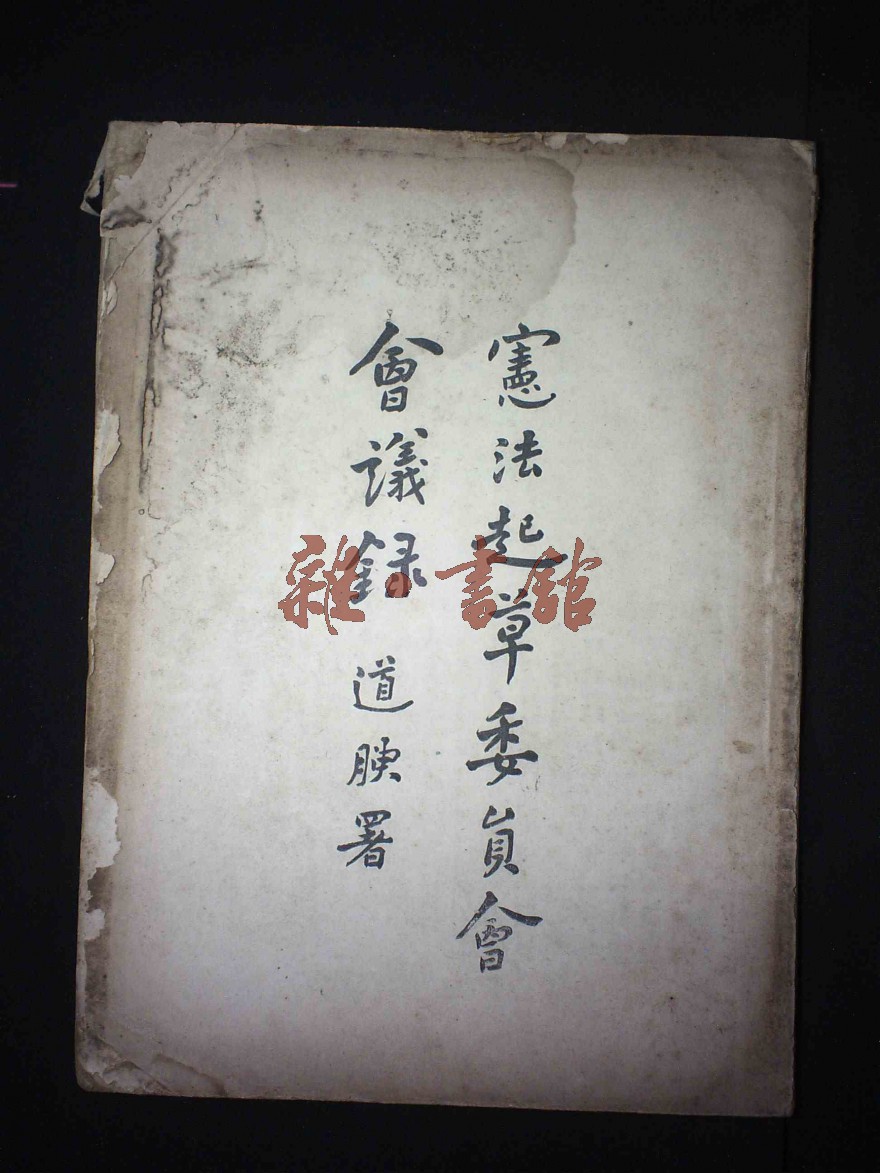 憲法起草委員會
會議録 道腴署
雜·書館